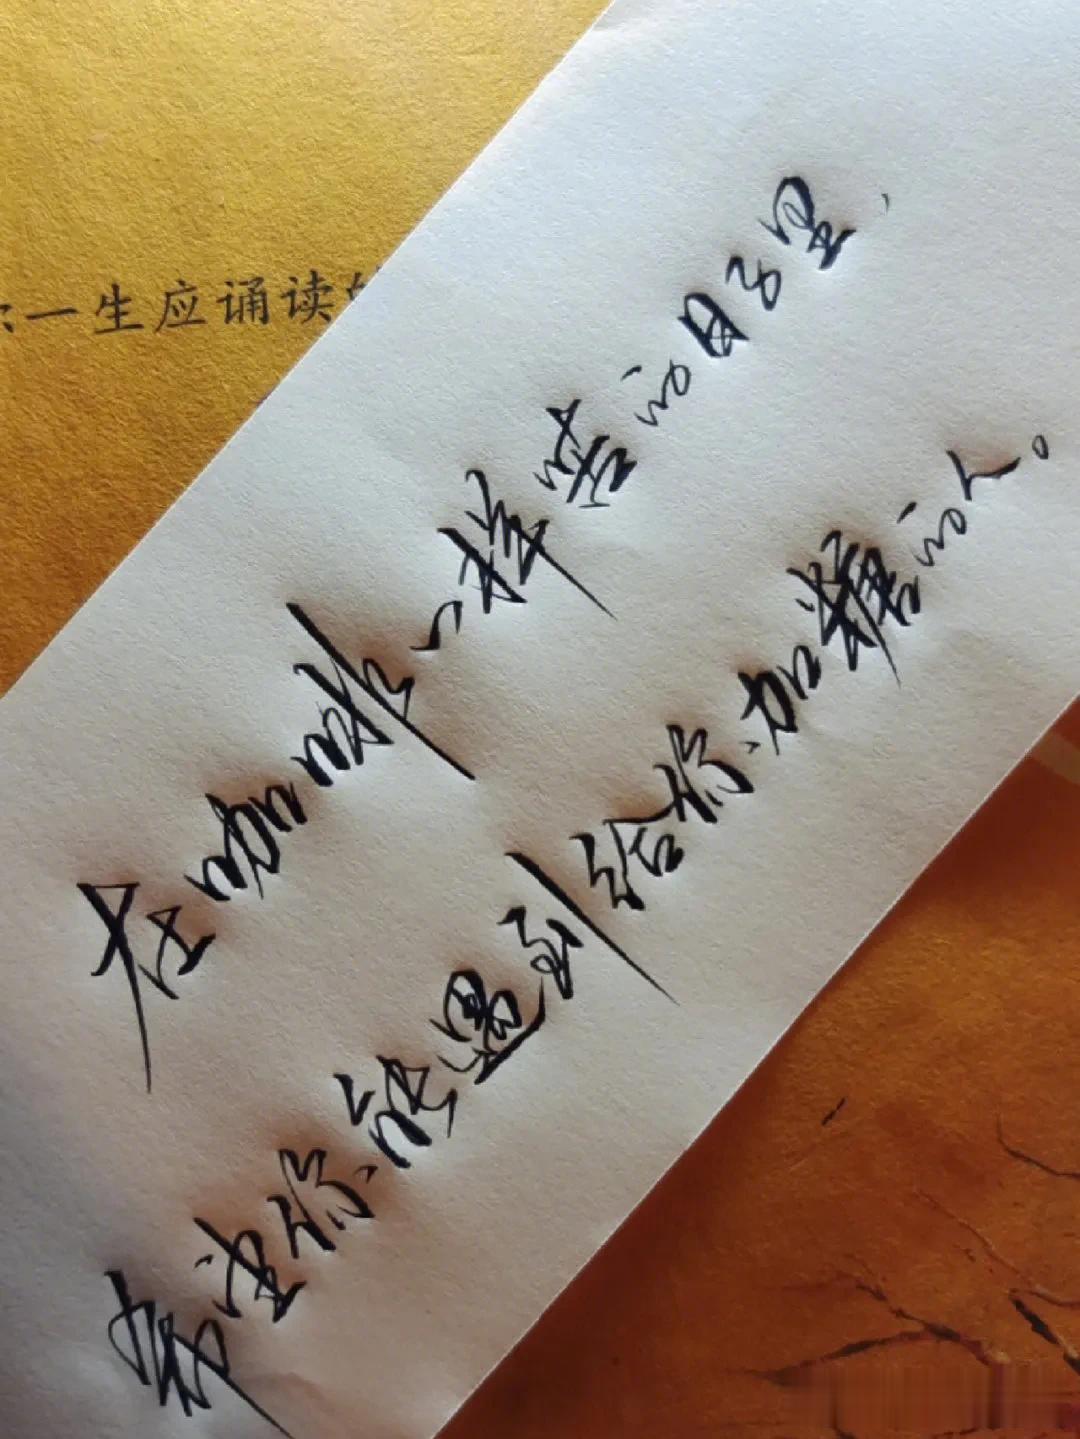 你一生应诵读的
在咖啡一样苦的日子里，
都望你能遇到给你加糖的人。